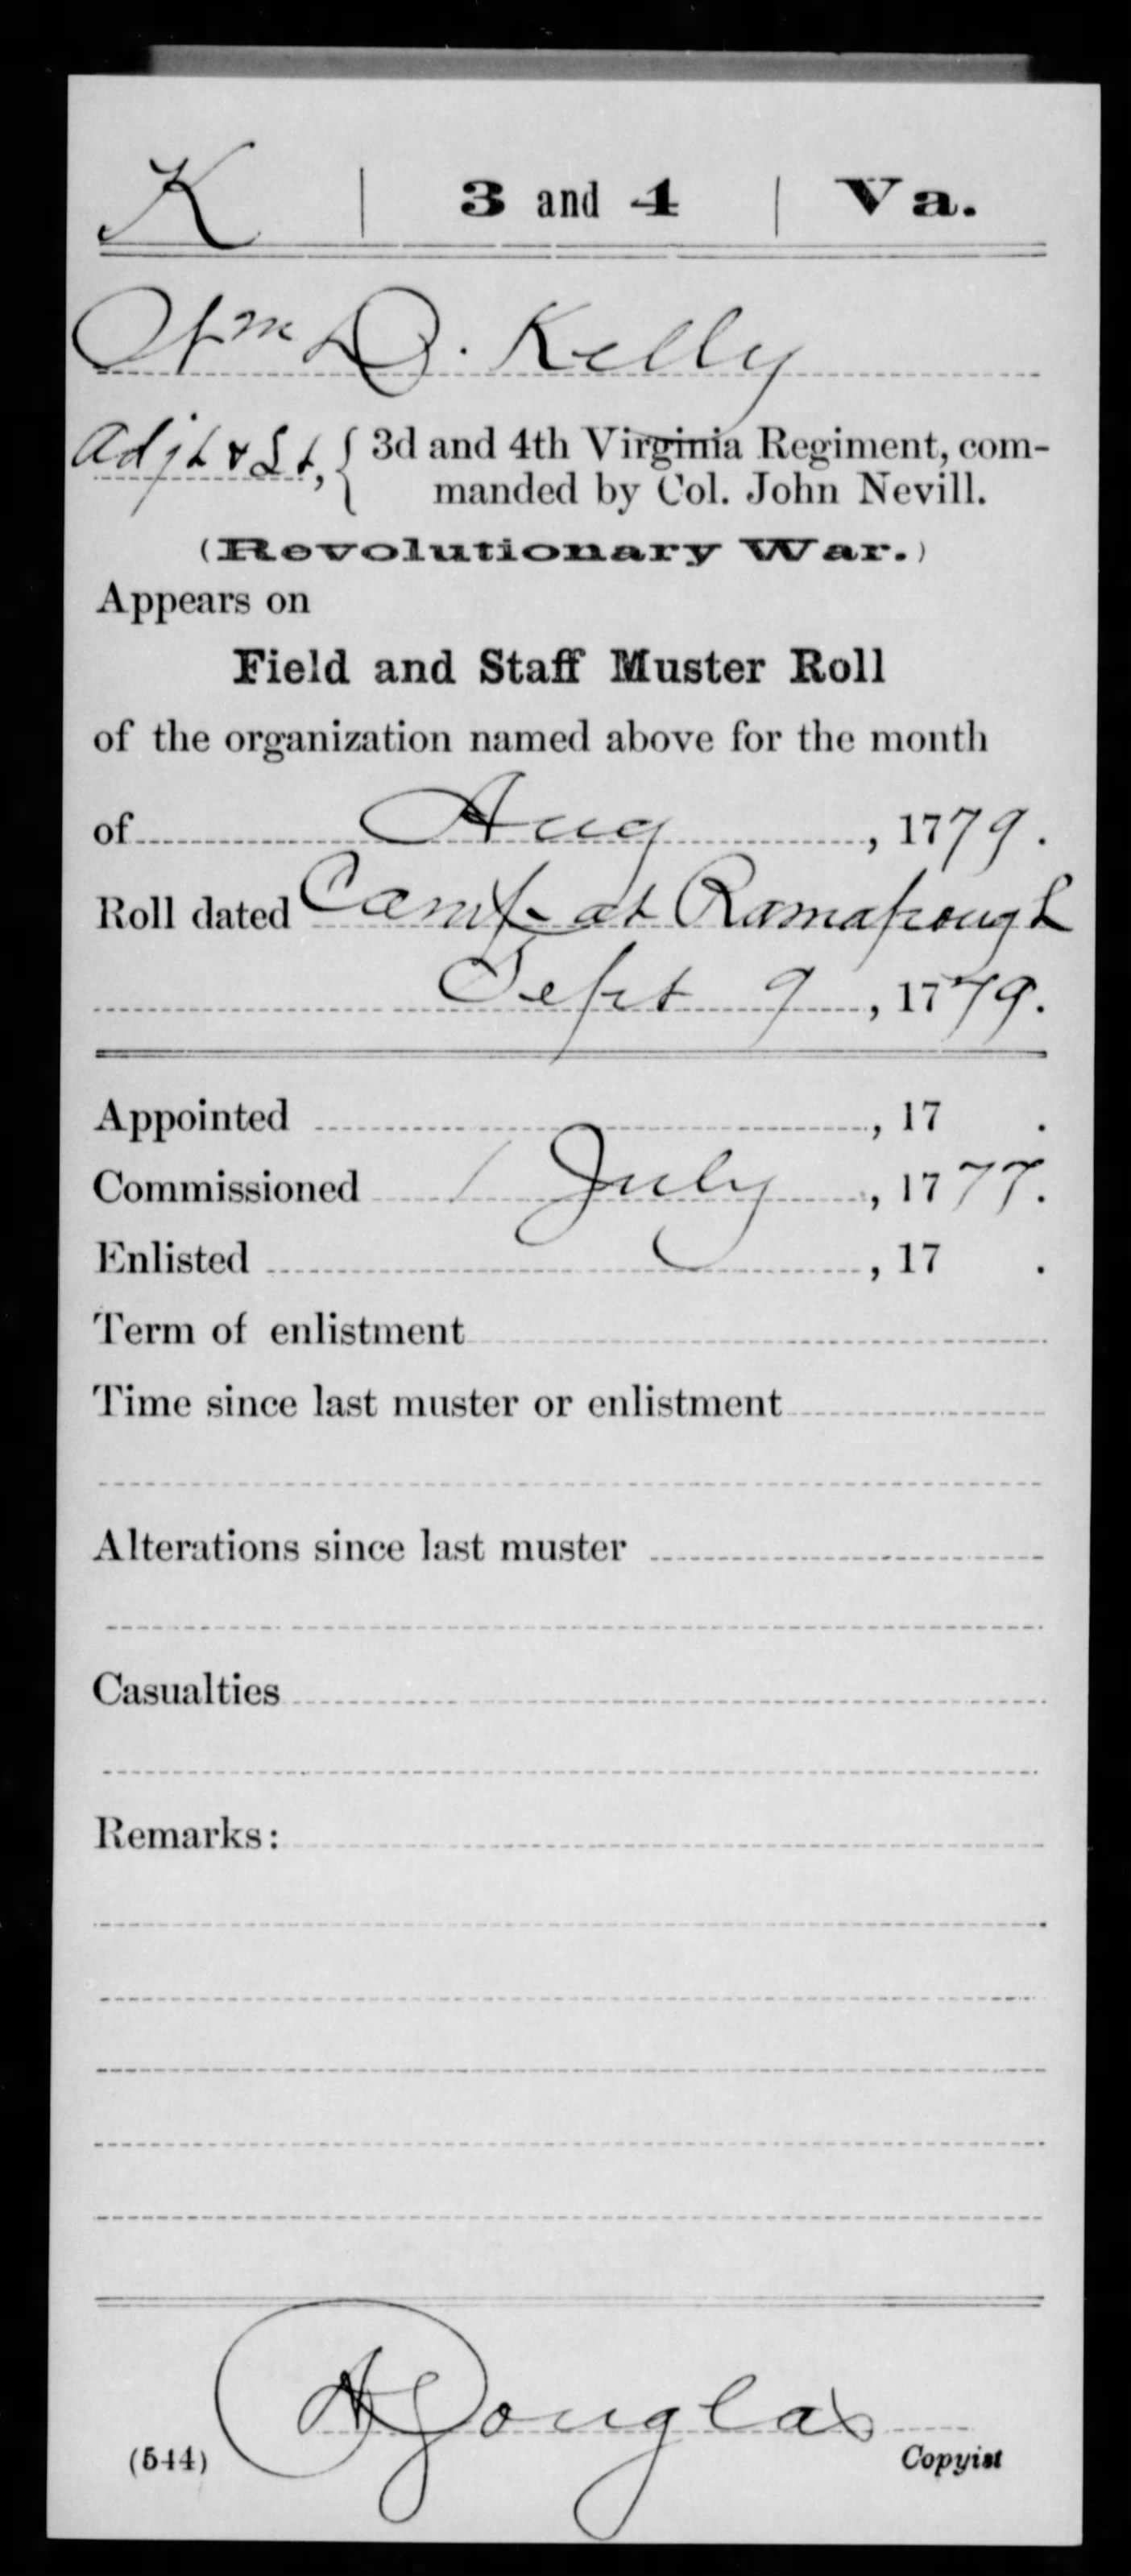 K | 3 and 4 | Va.
Wm D. Kelly
Adjt & Lt, { 3d and 4th Virginia Regiment, com-
manded by Col. John Nevill.
(Revolutionary War.)
Appears on
Field and Staff Muster Roll
of the organization named above for the month
of Aug, 1779.
Roll dated Camp at Ramapough
Sept 9, 1779.
Appointed , 17 .
Commissioned 1 July, 1777.
Enlisted , 17 .
Term of enlistment
Time since last muster or enlistment
Alterations since last muster
Casualties
Remarks:
A Douglas
(544) Copyist